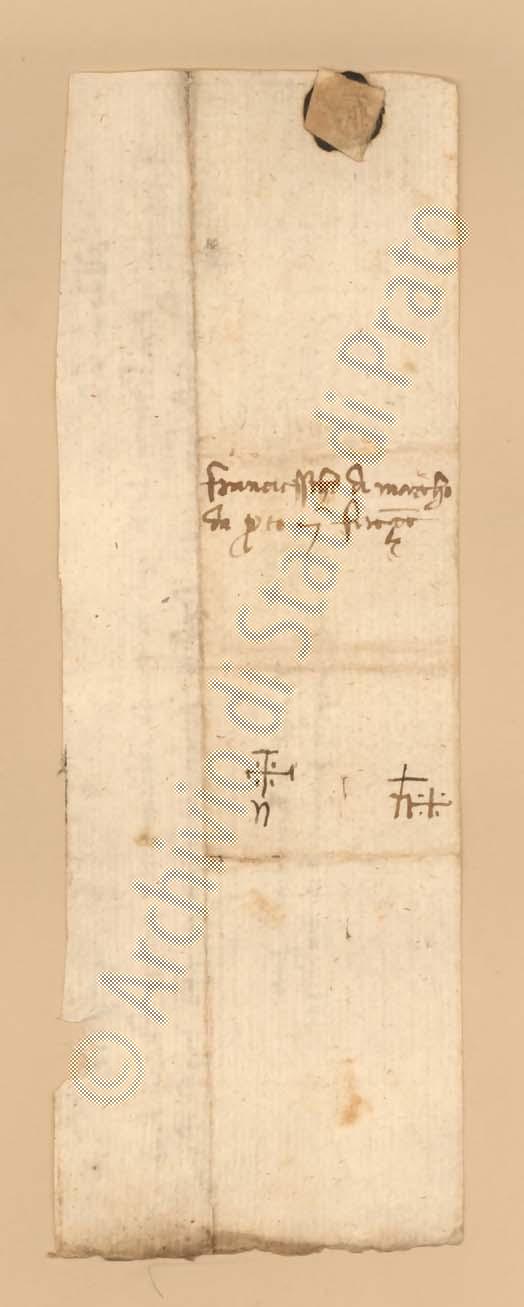 Franciesscho di marcho
da prto in firoçe
n
© Archivio di Stato di Prato